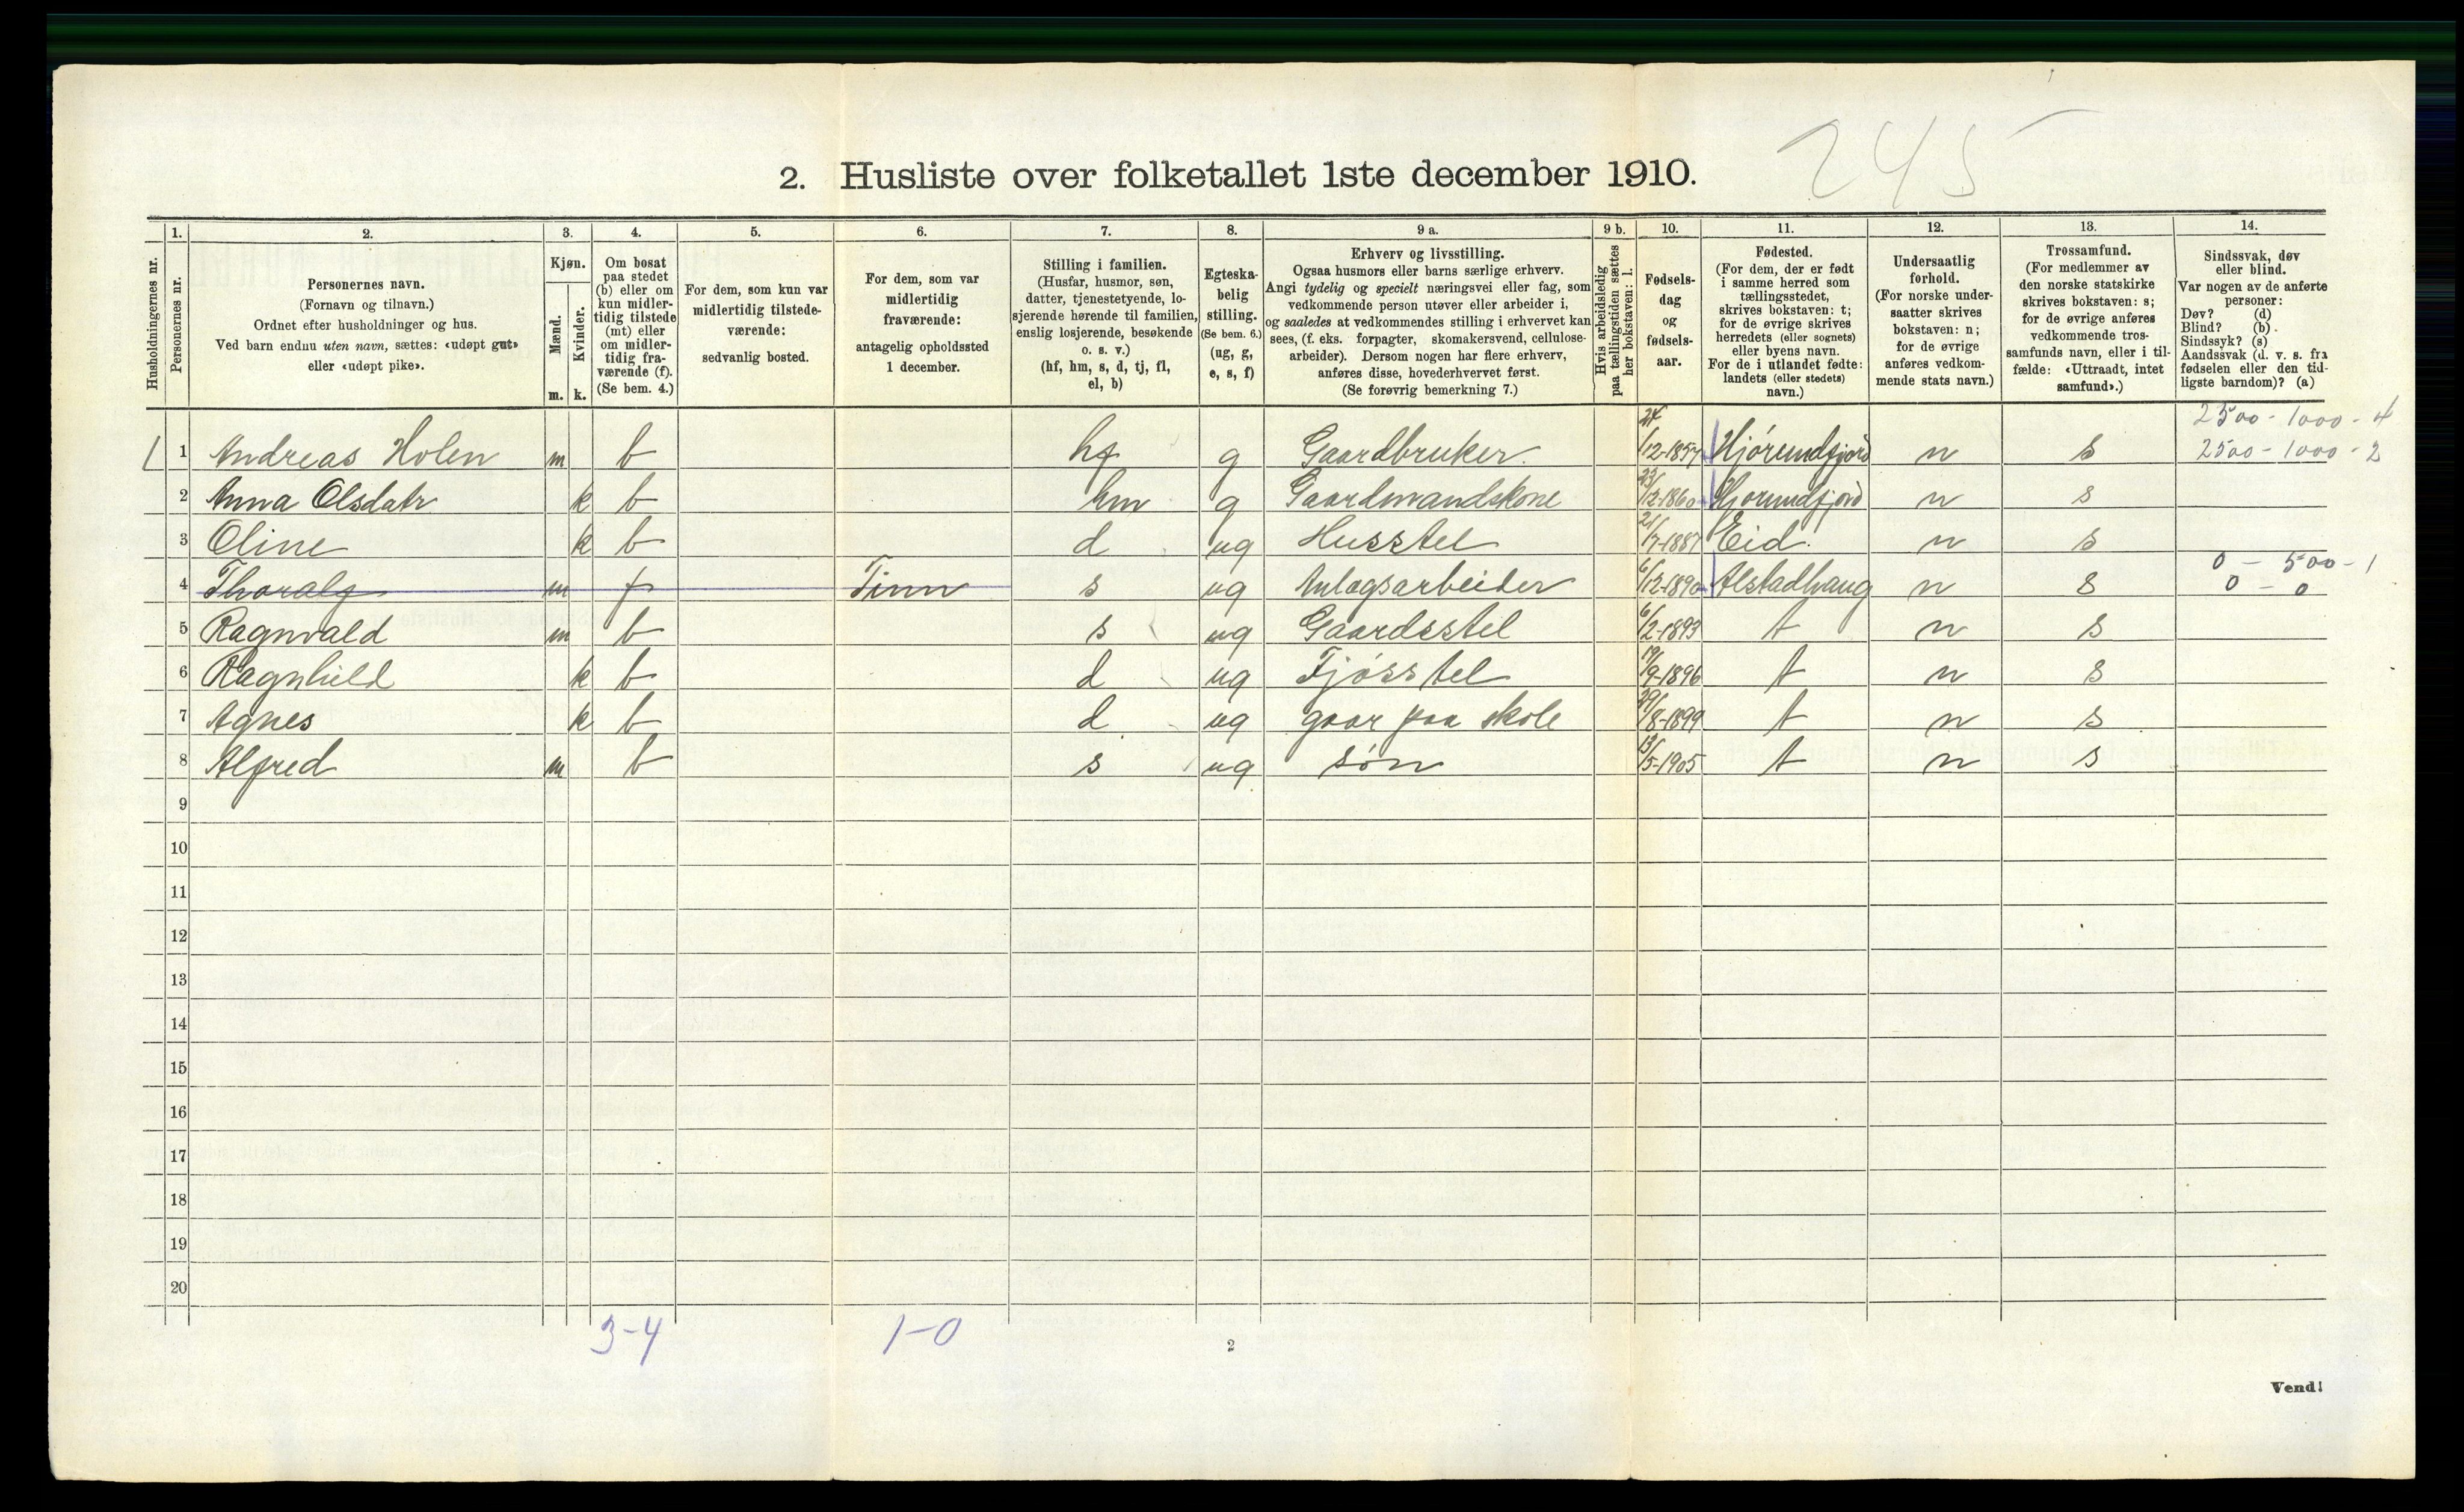 245
2. Husliste over folketallet 1ste december 1910.
Husholdningernes nr.
1. Personernes nr.
2. Personernes navn.
(Fornavn og tilnavn.)
Ordnet efter husholdninger og hus.
Ved barn endnu uten navn, sættes: «udøpt gut»
eller «udøpt pike».
3. Kjøn.
Mænd. Kvinder.
m. k.
4. Om bosat
paa stedet
(b) eller om
kun midler-
tidig tilstede
(mt) eller
om midler-
tidig fra-
værende (f).
(Se bem. 4.)
5. For dem, som kun var
midlertidig tilstede-
værende:
sedvanlig bosted.
6. For dem, som var
midlertidig
fraværende:
antagelig opholdssted
1 december.
7. Stilling i familien.
(Husfar, husmor, søn,
datter, tjenestetyende, lo-
sjerende hørende til familien,
enslig losjerende, besøkende
o. s. v.)
(hf, hm, s, d, tj, fl,
el, b)
8. Egteska-
belig
stilling.
(Se bem. 6.)
(ug, g,
e, s, f)
9 a. Erhverv og livsstilling.
Ogsaa husmors eller barns særlige erhverv.
Angi tydelig og specielt næringsvei eller fag, som
vedkommende person utøver eller arbeider i,
og saaledes at vedkommendes stilling i erhvervet kan
sees, (f. eks. forpagter, skomakersvend, cellulose-
arbeider). Dersom nogen har flere erhverv,
anføres disse, hovederhvervet først.
(Se forøvrig bemerkning 7.)
9 b. Hvis arbeidsledig
paa tællingstiden sættes
her bokstaven: l.
10. Fødsels-
dag
og
fødsels-
aar.
11. Fødested.
(For dem, der er født
i samme herred som
tællingsstedet,
skrives bokstaven: t;
for de øvrige skrives
herredets (eller sognets)
eller byens navn.
For de i utlandet fødte:
landets (eller stedets)
navn.)
12. Undersaatlig
forhold.
(For norske under-
saatter skrives
bokstaven: n;
for de øvrige
anføres vedkom-
mende stats navn.)
13. Trossamfund.
(For medlemmer av
den norske statskirke
skrives bokstaven: s;
for de øvrige anføres
vedkommende tros-
samfunds navn, eller i til-
fælde: «Uttraadt, intet
samfund».)
14. Sindssvak, døv
eller blind.
Var nogen av de anførte
personer:
Døv? (d)
Blind? (b)
Sindssyk? (s)
Aandssvak (d. v. s. fra
fødselen eller den tid-
ligste barndom)? (a)
2500 - 1000 - 4
1 1 Andreas Holen m b hf g Gaardbruker. 24/12-1857 Hjørundfjord n s 2500 - 1000 - 2
2 Anna Olsdatr k b hm g Gaardmandskone 23/12-1860 Hjorundfjord n s
3 Oline k b d ug Husstel 21/7-1887 Eid. n s
0 - 500 - 1
4 Thoralf m f Tinn s ug Anlægsarbeider 6/12-1890 Alstadhaug n s 0 - 0
5 Ragnvald m b s ug Gaardsstel 6/2-1893 t n s
6 Ragnhild k b d ug Fjøsstel 19/9-1896 t n s
7 Agnes k b d ug gaar paa skole 29/8-1899 t n s
8 Alfred m b s ug søn 13/5-1905 t n s
9
10
11
12
13
14
15
16
17
18
19
20
3-4 1-0
2
Vend!